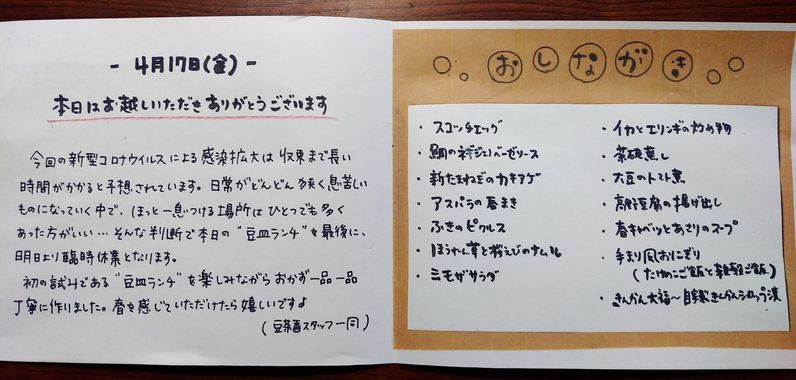 - 4月17日(金) -
本日はお越しいただきありがとうございます
今回の新型コロナウイルスによる感染拡大は収束まで長い
時間がかかると予想されています。日常がどんどん狭く息苦しい
ものになっていく中で、ほっと一息つける場所はひとつでも多く
あった方がいい…そんな判断で本日の"豆皿ランチ"を最後に、
明日より臨時休業となります。
初の試みである"豆皿ランチ"を楽しみながらおかず一品一品
丁寧に作りました。春を感じていただけたら嬉しいです♪
(豆茶香スタッフ一同)
おしながき
・スコッチエッグ
・鯛のネギジェノベーゼソース
・新たまねぎのカキアゲ
・アスパラの春まき
・ふきのピクルス
・ほうれん草と桜えびのナムル
・ミモザサラダ
・イカとエリンギの炒め物
・茶碗蒸し
・大豆のトマト煮
・高野豆腐の揚げ出し
・春キャベツとあさりのスープ
・手まり風おにぎり
(たけのこご飯とご飯)
・きんかん大福〜自家製きんかんシロップ漬